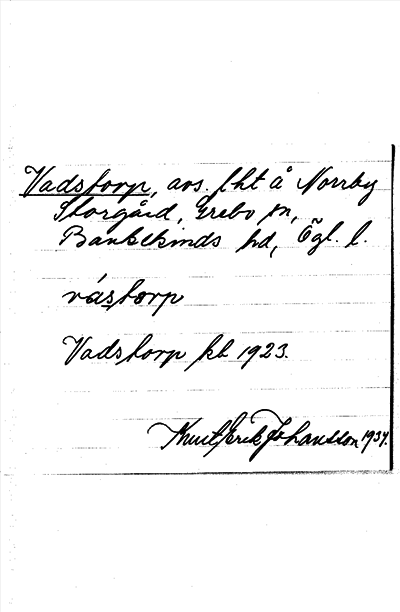 Vadstorp, avs. lht å Norrby
Storgård, Grebo sn,
Bankekinds hd, Ögl. l.
vástorp
Vadstorp kb 1923.
Knut Erik Johansson 1934.